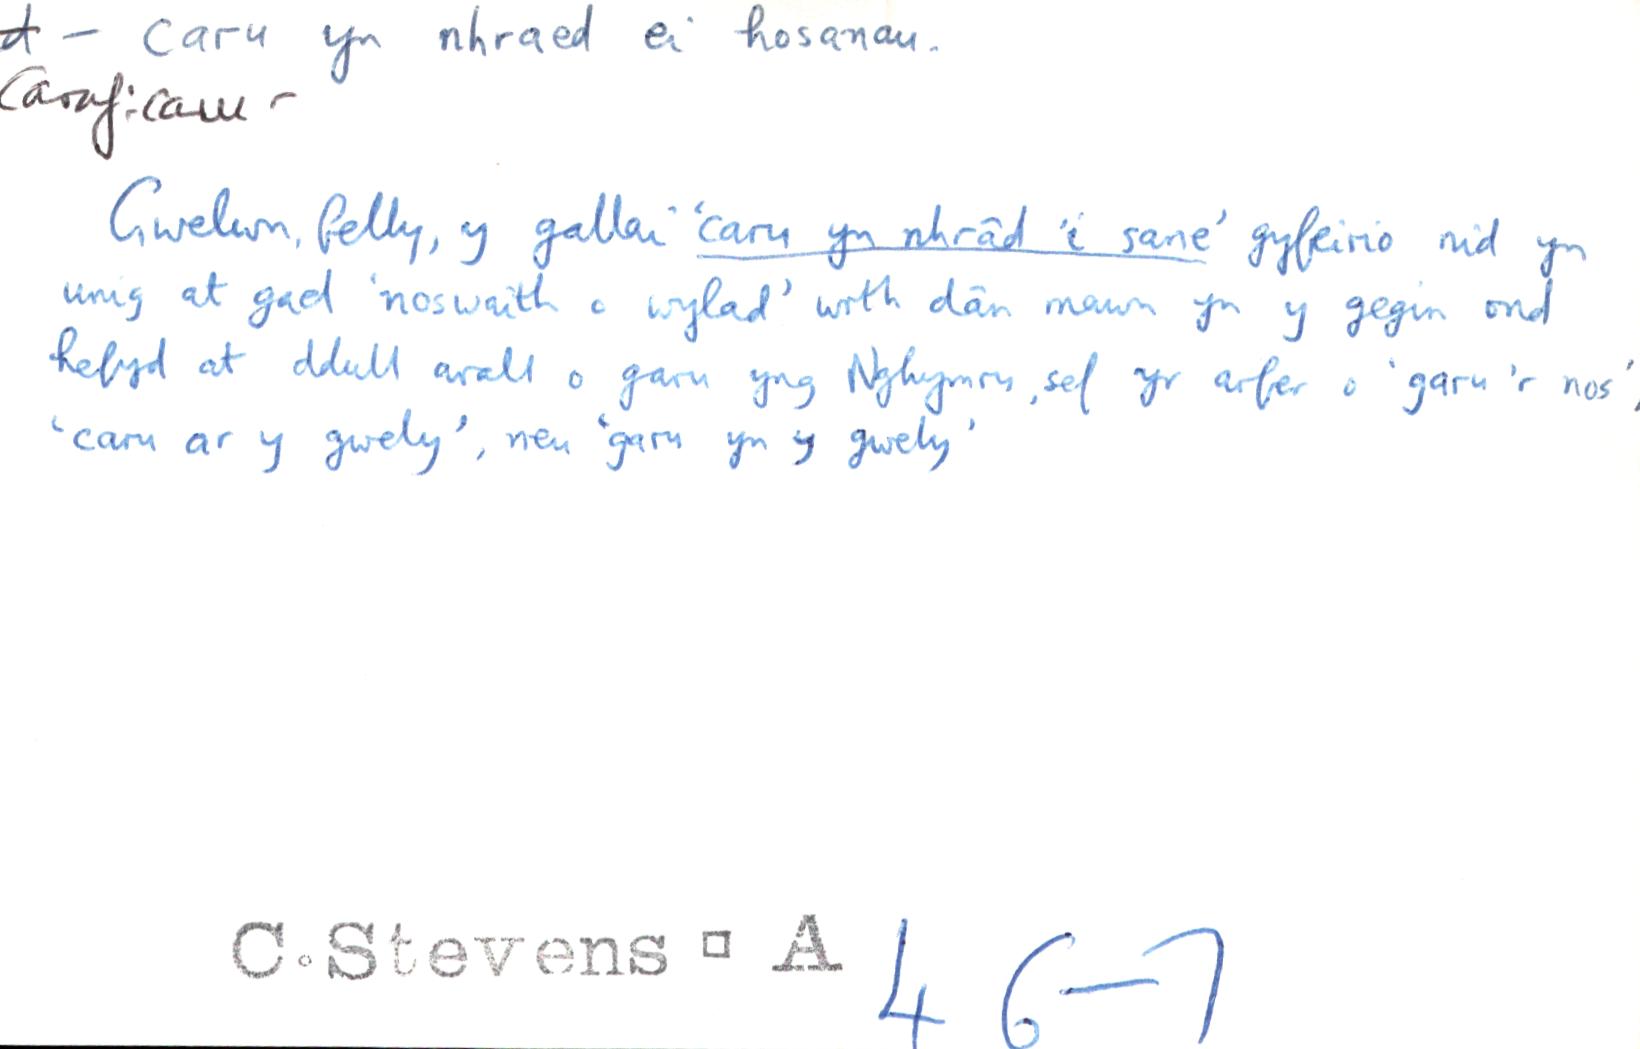 d – caru yn nhraed ei hosanau.
Caraf: caru –
Gwelwn, felly, y gallai 'caru yn nhrâd 'i sane' gyfeirio nid yn
unig at gael 'noswaith o wylad' wrth dân mawn yn y gegin ond
hefyd at ddull arall o garu yng Nghymru, sef yr arfer o 'garu 'r nos',
'caru ar y gwely', neu 'garu yn y gwely'
C. Stevens ▫ A 46–7